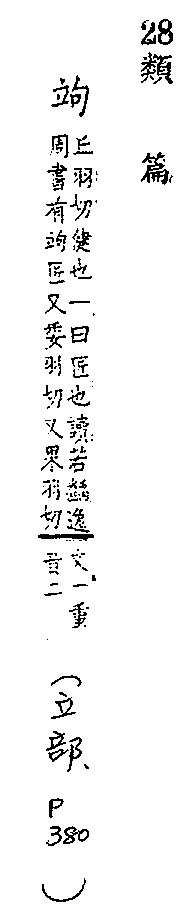 28類篇
竘
丘羽切健也一曰匠也讀若齲逸
周書有竘匠又委羽切又果羽切
文一重
音二
(立部、P380)